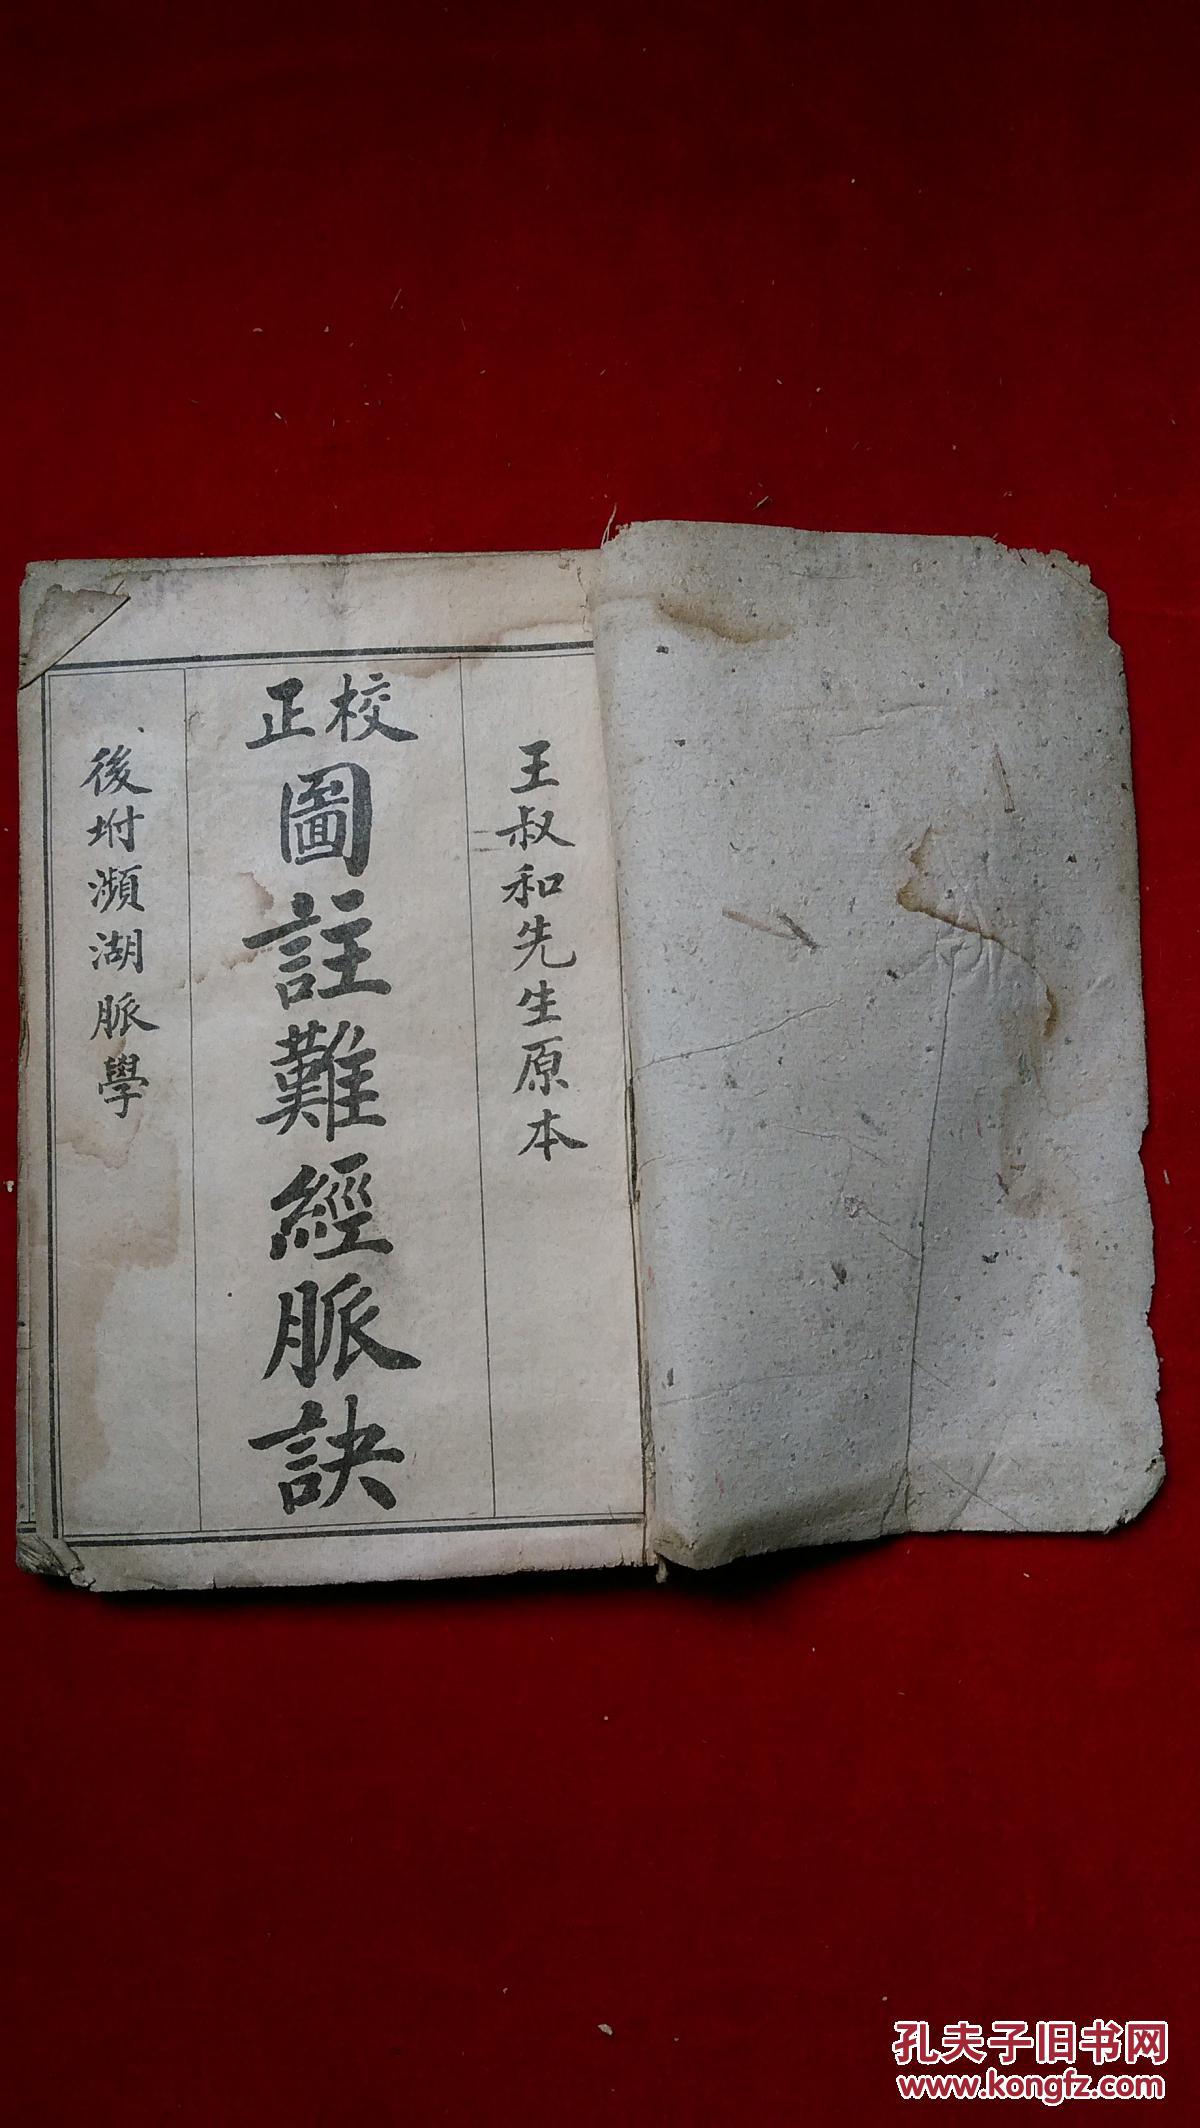 王叔和先生原本
校正
圖註難經脈訣
後坿瀕湖脈學
孔夫子旧书网
www.kongfz.com